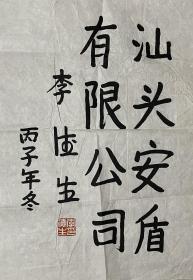 汕头安盾
有限公司
李德生
丙子年冬